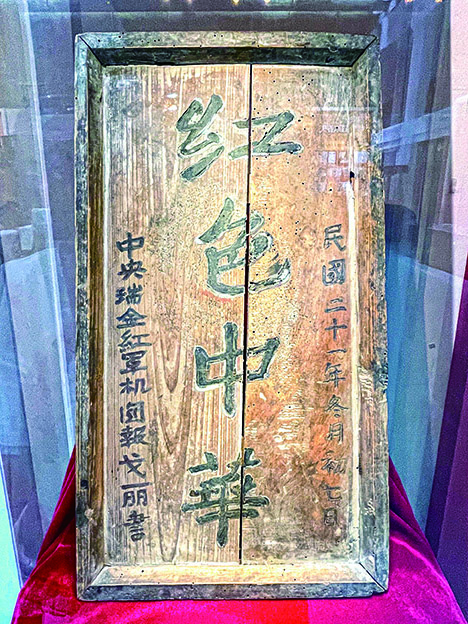 民國二十一年冬月初七日
红色中華
中央瑞金紅軍机関報戈丽書